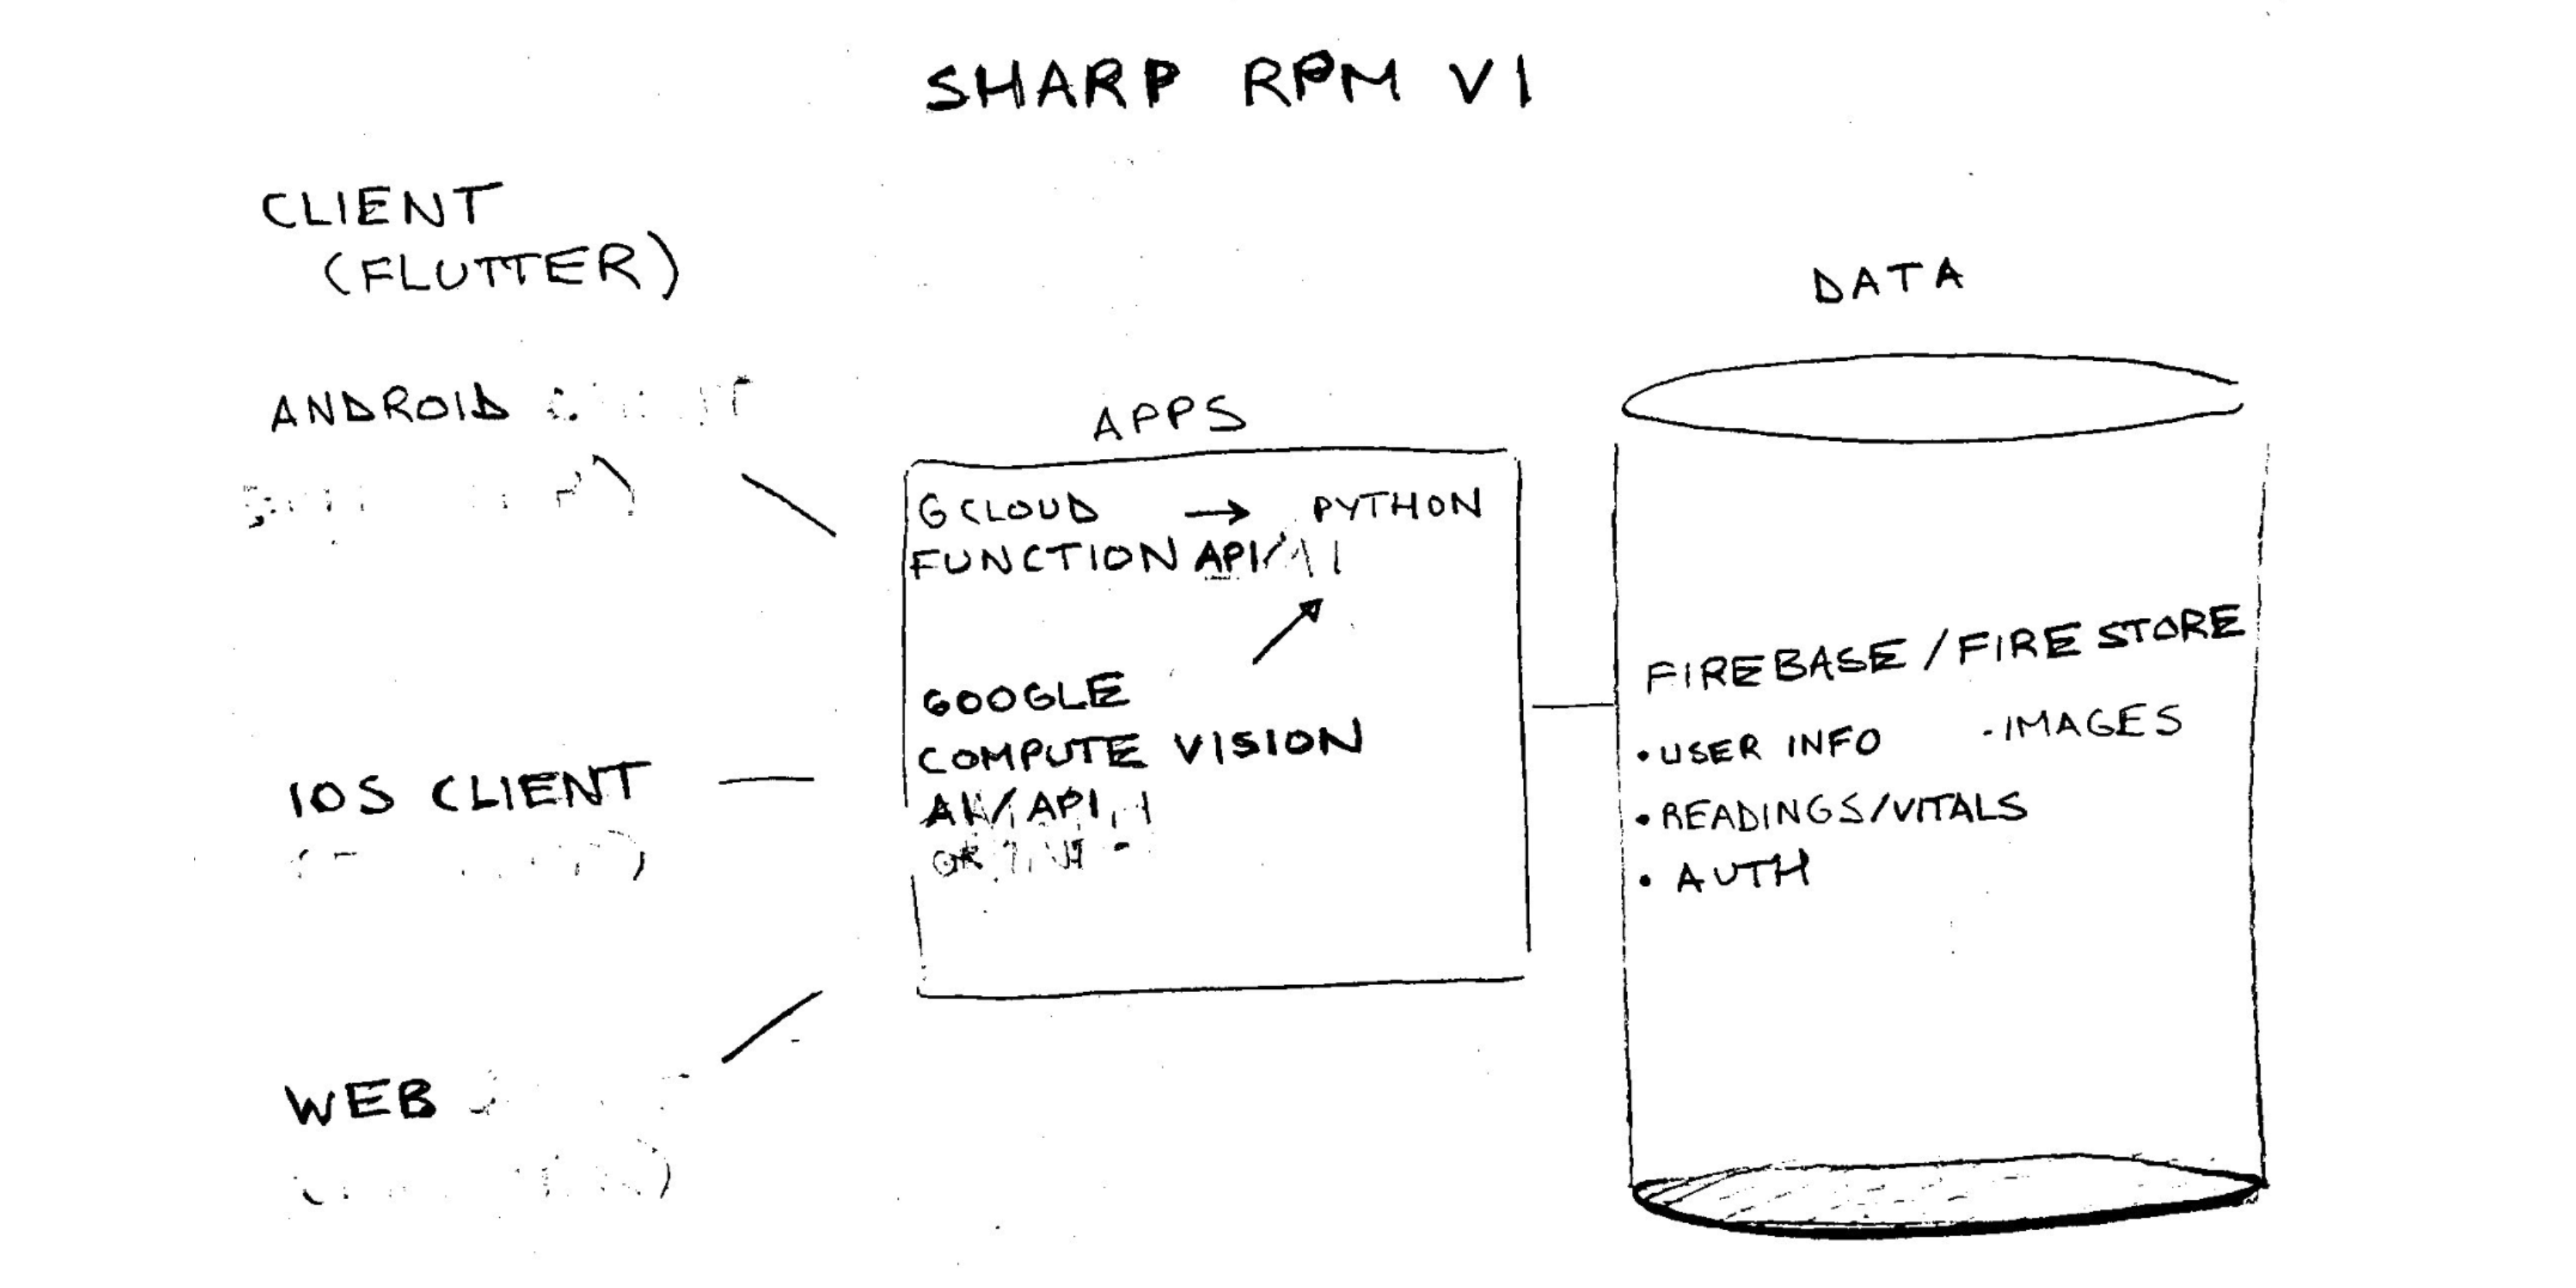 SHARP RPM V1
CLIENT
(FLUTTER)
ANDROID
IOS CLIENT
WEB
APPS
GCLOUD → PYTHON
FUNCTION API/
GOOGLE
COMPUTE VISION
/API
DATA
FIREBASE/FIRESTORE
• USER INFO - IMAGES
• READINGS/VITALS
• AUTH